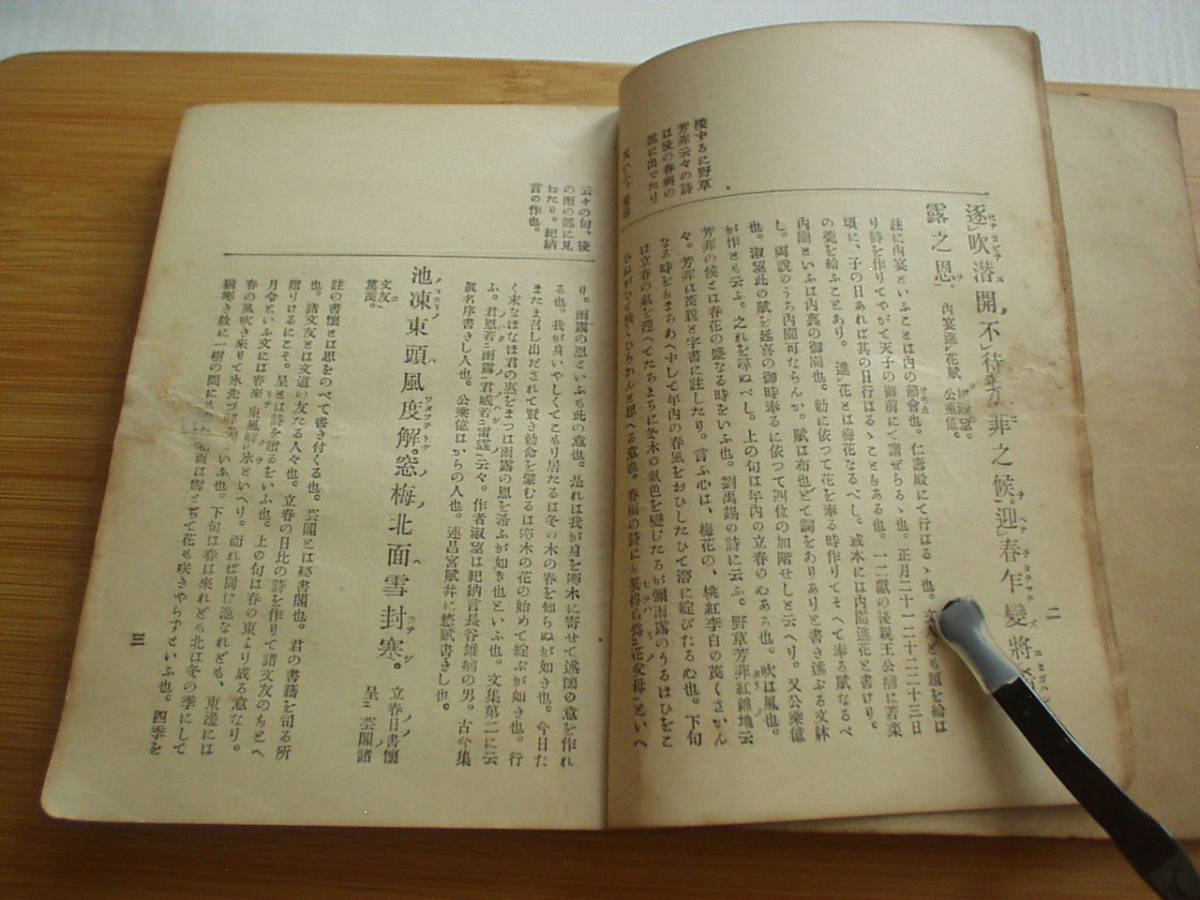 二
逐吹潜開、不待芳菲之候、迎春乍變、將
露之恩。
內宴進花賦
公乘億。
註に內宴といふことは內の節會也。仁壽殿にて行はるゝ也。文人ども題を給は
り詩を作りてやがて天子の御前にて講ぜらるゝ也。正月二十一二十二二十三日
頃に、子の日あれば其の日行はるゝこともある也。一二獻の後親王公卿に若菜
の羹を給ふことあり。進花とは梅花なるべし。或本には內園進花と書けり。
內園といふは內裏の御園也。勅に依つて花を奉る時作りてそへて奉る賦なるべ
し。兩說のうち內園可ならんか。賦は布也とて詞をありありと書き述ぶる文躰
也。淑望此の賦を延喜の御時奉るに依つて四位の加階せしと云へり。又公乘億
が作とも云ふ。之れを尋ぬべし。上の句は年內の立春の心ある也。吹は風也。
芳菲の候とは春花の盛なる時をいふ也。劉禹錫の詩に云ふ。野草芳菲紅錦地云
々。芳菲は茂貌と字書に註したり。言ふ心は、梅花の、桃紅李白の茂くさかん
なる時をもまちあへ中して年內の春風をおひしたひて潜に綻びたる心也。下句
は立春の氣を迎へてたちまちに冬木の氣色を變じたるが彌雨露のうるほひをこ
按ずるに野草
芳菲云々の詩
は後の春興の
部に出でたり
云々の句、後
の雨の部に見
わたり。紀納
言の作也。
り。雨露の恩といふも此の意也。是れは我が身を冬木に寄せて述懷の意を作れ
る也。我が身いやしくてこもり居たるは冬の木の春を知らぬが如き也。今日た
またま召し出だされて賢き勅命を蒙むるは冬木の花の始めて綻ぶが如き也。行
く末なほなほ君の惠をまつは雨露の恩を添ふが如き也といふ也。文集第二に云
ふ。君恩若雨露君威若雷霆云々。作者淑望は紀納言長谷雄卿の男。古今集
眞名序書きし人也。公乘億はからの人也。連昌宮賦幷に愁賦書きし也。
池凍東頭風度解。窓梅北面雪封寒。
立春日書懷
呈芸閣諸
文友
篤茂。
註の書懷とは思をのべて書き付くる也。芸閣とは秘書閣也。君の書籍を司る所
也。諸文友とは文道の友たる人々也。立春の日比の詩を作りて諸文友のもとへ
贈りけるにこそ。呈とは詩を贈るをいふ也。上の句は春の東より成る意なり。
月令といふ文には春來東風解氷といへり。而れば同じ池なれども、東邊には
春の風吹き來りて氷先づ
いふ也。下句は春は來れども北は冬の季にして
猶寒き故に一樹の間に
雪とぢて花も咲きやらずといふ也。四季を
三